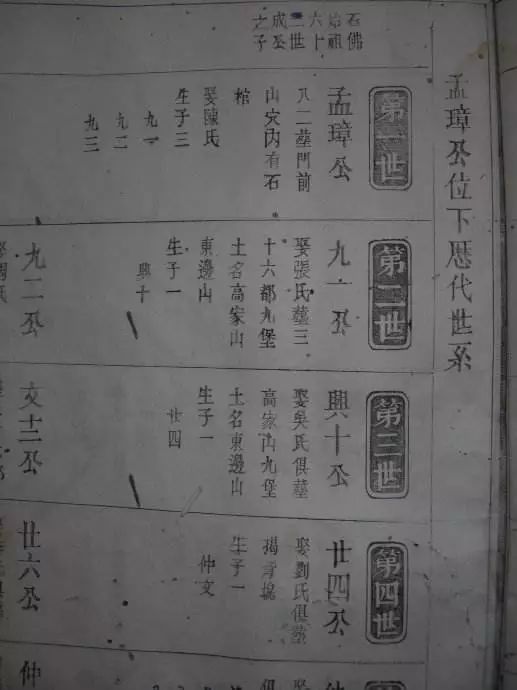 孟璋公位下歷代世系
石佛
始祖
六十
二世
成公
之子
第一世
孟璋公
八二塟門前
山穴内有石
棺
娶陳氏
生子三
九一
九二
九三
第二世
九一公
娶張氏塟三
十六都九堡
土名高家山
東邊山
生子一
興十
九二公
第三世
興十公
娶吳氏俱塟
高家山九堡
土名東邊山
生子一
廿四
文十二公
第四世
廿四公
娶劉氏俱塟
生子一
仲文
廿六公
仲